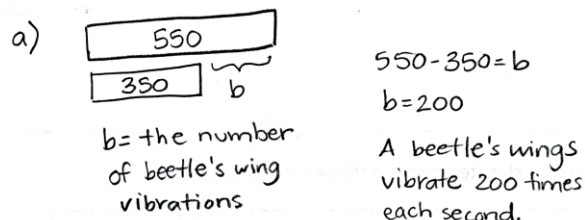 a)
550
350
b
b= the number
of beetle's wing
vibrations
550-350=b
b=200
A beetle's wings
vibrate 200 times
each second.